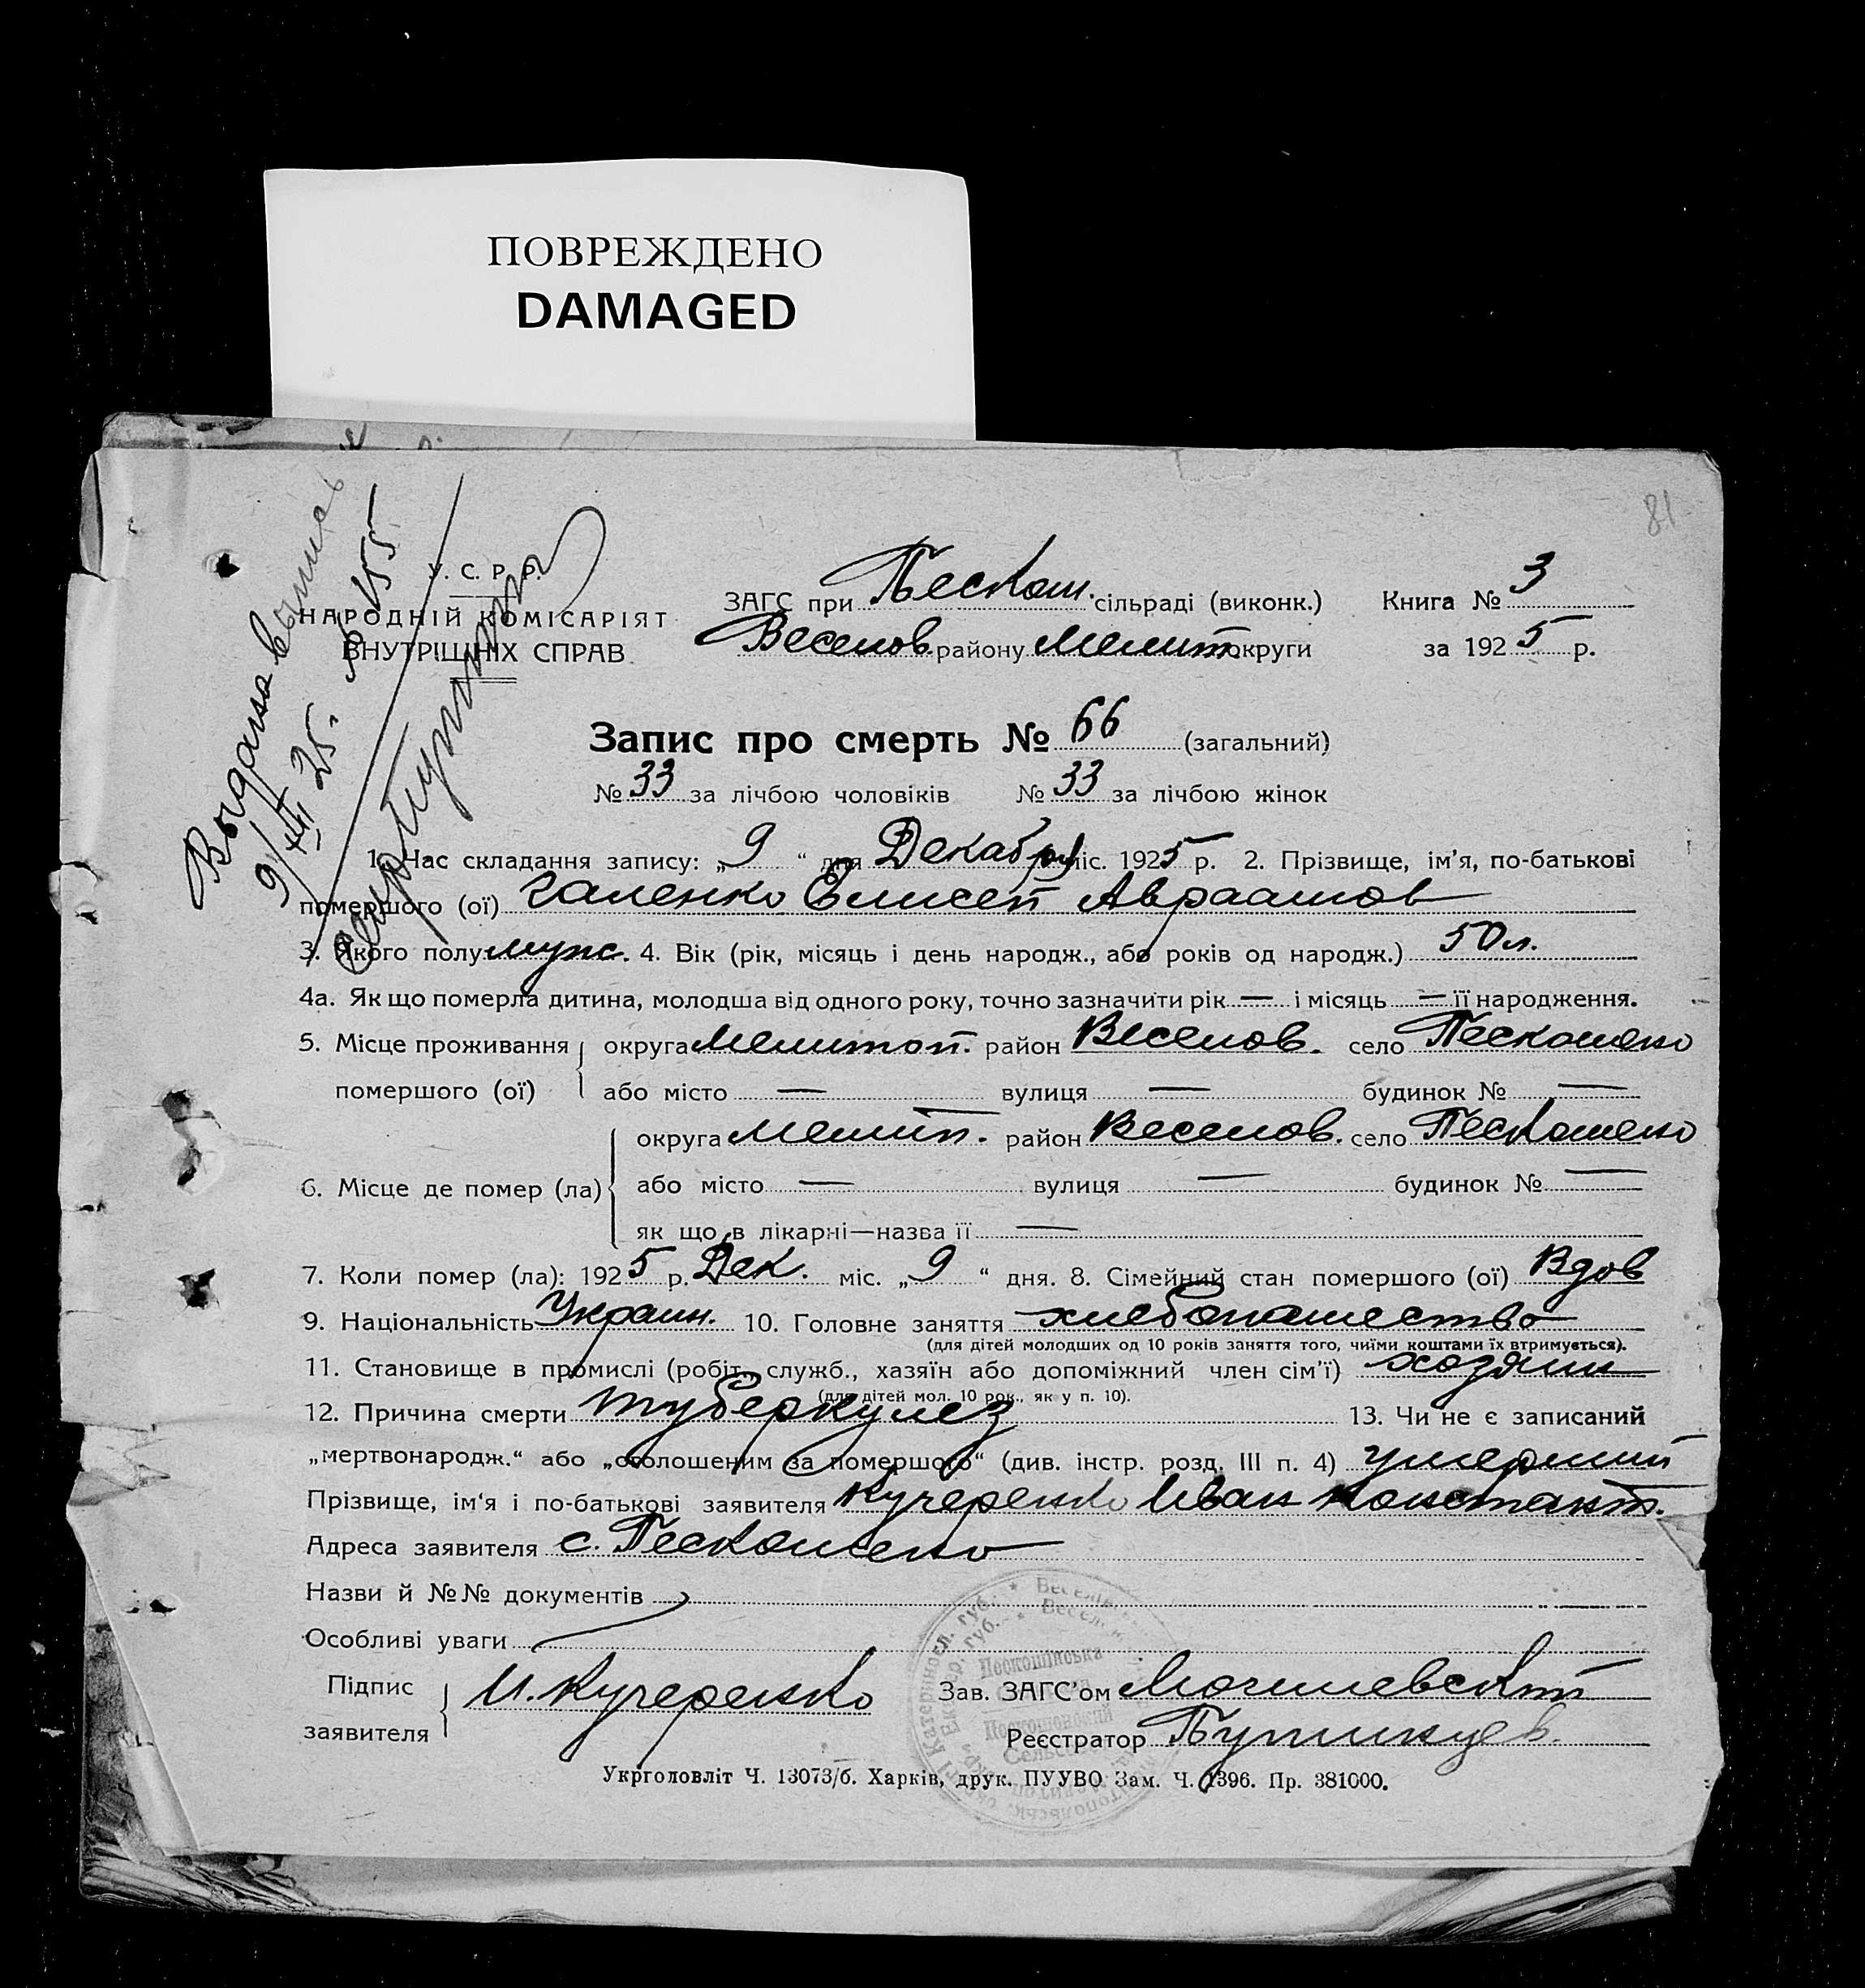 ПОВРЕЖДЕНО
DAMAGED
81
Выдана выпись
9/XII 25. № 155
У. С. Р. Р.
НАРОДНІЙ КОМІСАРІЯТ
ВНУТРІШНІХ СПРАВ
ЗАГС при Пескош. сільраді (виконк.) Книга № 3
Веселов. району Мелит. округи за 1925 р.
Запис про смерть № 66 (загальний)
№ 33 за лічбою чоловіків № 33 за лічбою жінок
1. Час складання запису: „9“ дня Декабря міс. 1925 р. 2. Прізвище, ім'я, по-батькові
помершого (ої) Галенко Елисей Авраамов
3. Якого полу муж. 4. Вік (рік, місяць і день народж., або років од народж.) 50 л.
4а. Як що померла дитина, молодша від одного року, точно зазначити рік — і місяць — її народження.
5. Місце проживання округа Мелитоп. район Веселов. село Пескошено
помершого (ої) або місто — вулиця — будинок № —
округа Мелитп. район Веселов. село Пескошено
6. Місце де помер (ла) або місто — вулиця — будинок № —
як що в лікарні—назва її —
7. Коли помер (ла): 1925 р. Дек. міс. „9“ дня. 8. Сімейний стан помершого (ої) Вдов
9. Національність Украин. 10. Головне заняття хлебопашество
(для дітей молодших од 10 років заняття того, чиїми коштами їх втримується).
11. Становище в промислі (робіт., служб., хазяїн або допоміжний член сім'ї) хозяин
(для дітей мол. 10 рок., як у п. 10).
12. Причина смерти туберкулез 13. Чи не є записаний
„мертвонародж.“ або „оголошеним за помершого“ (див. інстр. розд. III п. 4) умерший
Прізвище, ім'я і по-батькові заявителя Кучеренко Иван Констант.
Адреса заявителя с. Пескошено
Назви й №№ документів
Особливі уваги
Підпис заявителя И. Кучеренко Зав. ЗАГС'ом Могилевский
Реєстратор
Укрголовліт Ч. 13073/б. Харків, друк. ПУУВО Зам. Ч. 1396. Пр. 381000.